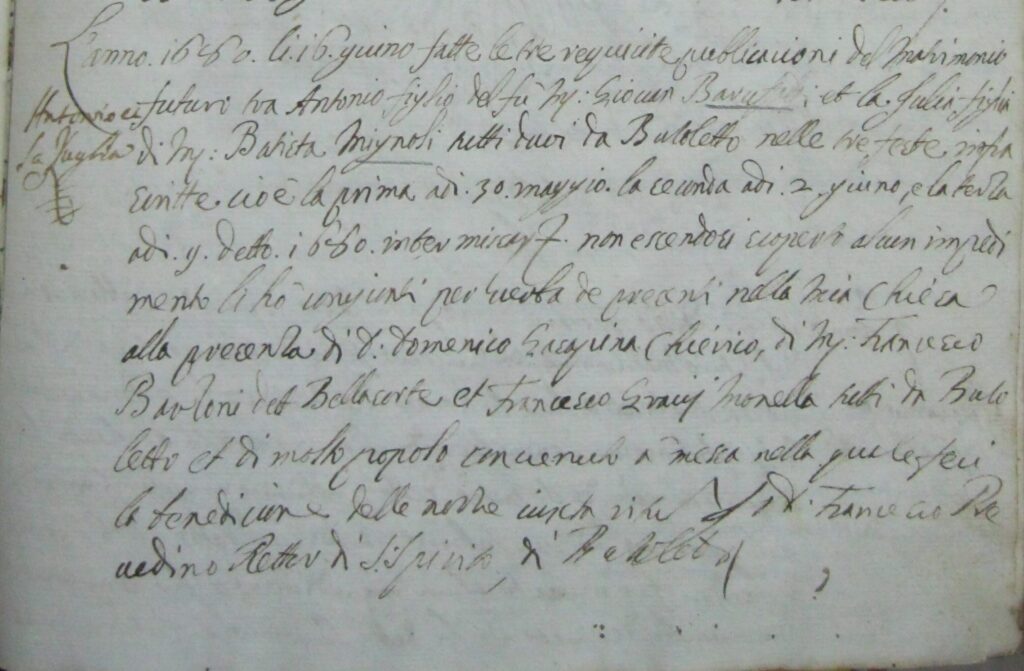 L'anno. 1680. li. 16. giuino fatte le tre requicite publicacioni del Matrimonio
Antonio et
futuri tra Antonio figlio del fù M: Giovan et la Julia figlia
la Juglia
di M: Batista Mignoli tutti duoi da Buloletto nelle tre feste infra
scritte cioè la prima adi. 30. maggio. la seconda adi. 2. giuno, e la terza
adi. 9. detto. 1680. inter non escendosi scoperto alcun impedi
mento li hò congionti per verba de precenti nella mia Chieca
alla precenza di D: Domenico Chierico, di M: Francesco
del Bellacorte et Francesco Monella tutti da Bulo
letto et di molto popolo a messa nella quale feci
la benedicione delle nozze iuxta ritu D: Francesco Be
vedino Rettor di S: Spirito, di